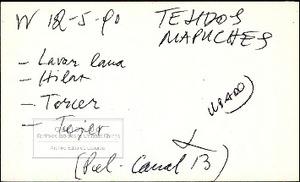 W 12-5-90
TEJIDOS
MAPUCHES
- Lavar lana
- Hilar
- Torcer
- Tejer
USADO
(Rel- Canal 13)